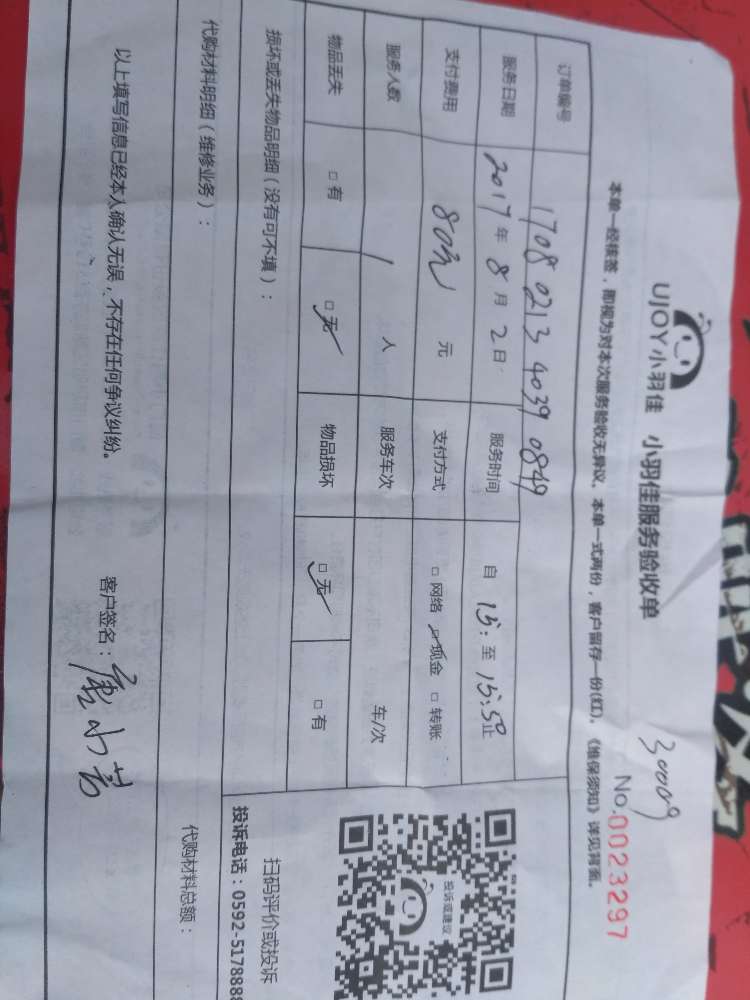 UJOY小羽佳 小羽佳服务验收单
30009
No.0023297
本单一经核签，即视为对本次服务验收无异议。本单一式两份，客户留存一份(红)。《维保须知》详见背面。
订单编号 1708 0213 4039 0849
服务日期 2017年8月2日 服务时间 自 15: 至 15:50止
支付费用 80元 元 支付方式 □网络 □现金 □转账
服务人数 1 人 服务车次 车/次
物品丢失 □有 □无 物品损坏 □无 □有
损坏或丢失物品明细（没有可不填）：
代购材料明细（维修业务）：
代购材料总额：
投诉或建议
扫码评价或投诉
投诉电话：0592-5178888
以上填写信息已经本人确认无误，不存在任何争议纠纷。 客户签名：